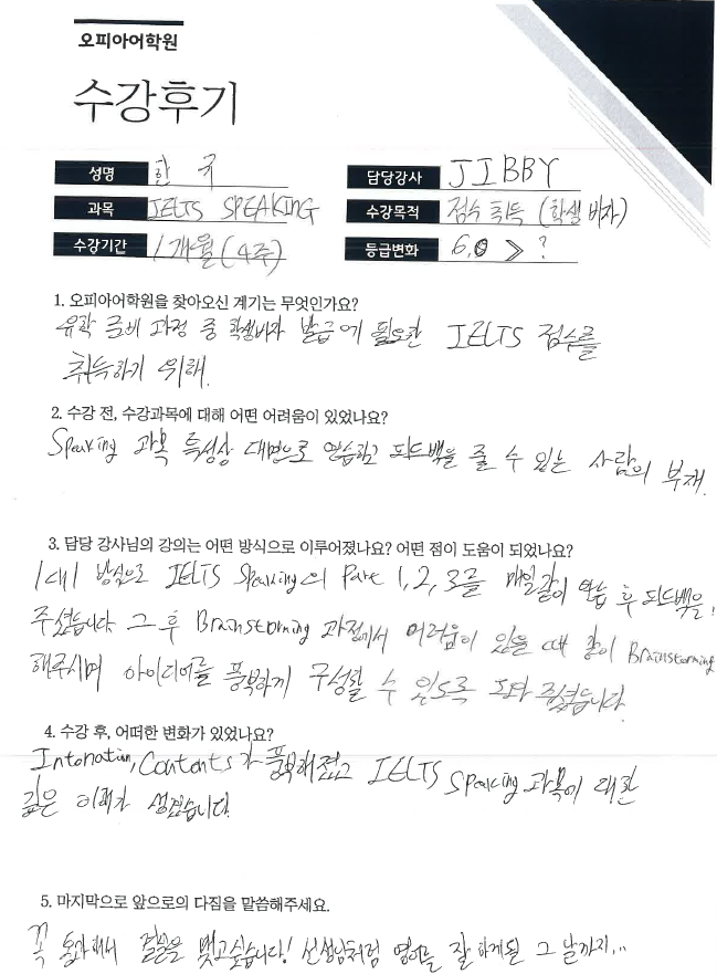 오피아어학원
수강후기
성명 한 국 담당강사 JIBBY
과목 IELTS SPEAKING 수강목적 점수 획득 (학생 비자)
수강기간 1개월 (4주) 등급변화 6.0 > ?
1. 오피아어학원을 찾아오신 계기는 무엇인가요?
유학 준비 과정 중 학생비자 발급에 필요한 IELTS 점수를
취득하기 위해.
2. 수강 전, 수강과목에 대해 어떤 어려움이 있었나요?
Speaking 과목 특성상 대면으로 연습하고 피드백을 줄 수 있는 사람의 부재.
3. 담당 강사님의 강의는 어떤 방식으로 이루어졌나요? 어떤 점이 도움이 되었나요?
1대1 방식으로 IELTS Speaking의 Part 1, 2, 3를 매일같이 연습 후 피드백을
주셨습니다. 그 후 Brainstorming 과정에서 어려움이 있을 때 같이 Brainstorming
해주시며 아이디어를 풍부하게 구성할 수 있도록 도와 주셨습니다.
4. 수강 후, 어떠한 변화가 있었나요?
Intonation, Contents가 풍부해졌고 IELTS Speaking 과목에 대한
깊은 이해가 생겼습니다.
5. 마지막으로 앞으로의 다짐을 말씀해주세요.
꼭 통과해서 결실을 맺고싶습니다! 선생님처럼 영어를 잘 하게될 그 날까지...